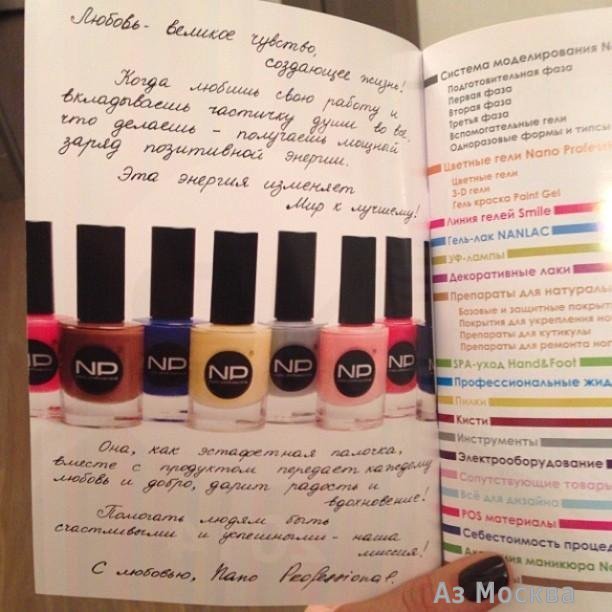 Любовь- великое чувство,
создающее жизнь!
Когда любишь свою работу и
вкладываешь частичку души во всё,
что делаешь - получаешь мощный
заряд позитивной энергии.
Эта энергия изменяет
Мир к лучшему!
NP
NP
NP
NP
NP
NP
NP
Она, как эстафетная палочка,
вместе с продуктом передает каждому
любовь и добро, дарит радость и
вдохновение!
Помогать людям быть
счастливыми и успешными - наша
миссия!
С любовью, Nano Professional.
Система моделирования
Подготовительная фаза
Первая фаза
Вторая фаза
Третья фаза
Вспомогательные гели
Одноразовые формы и типсы
Цветные гели Nano
Цветные гели
3-D гели
Гель краска Paint Gel
Линия гелей Smile
Гель-лак NANLAC
УФ-лампы
Декоративные лаки
Препараты для
Базовые и защитные
Покрытия для укрепления
Препараты для кутикулы
Препараты для ремонта
SPA-уход Hand&Foot
Профессиональные
Пилки
Кисти
Инструменты
Электрооборудование
Сопутствующие товары
Всё для дизайна
POS материалы
Себестоимость
маникюра
Аз Москва